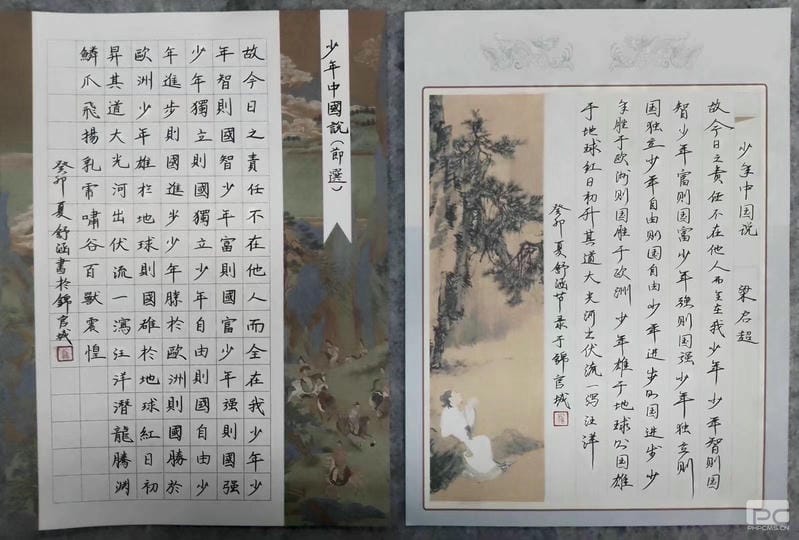 少年中國說（節選）
故今日之責任不在他人而全在我少年少
年智則國智少年富則國富少年强則國强
少年獨立則國獨立少年自由則國自由少
年進步則國進步少年勝於歐洲則國勝於
歐洲少年雄於地球則國雄於地球紅日初
昇其道大光河出伏流一瀉汪洋潛龍騰淵
鱗爪飛揚乳虎嘯谷百獸震惶
癸卯夏舒涵書於錦官城
少年中国说 梁启超
故今日之责任不在他人而全在我少年少年智则国
智少年富则国富少年强则国强少年独立则
国独立少年自由则国自由少年进步则国进步少
年胜于欧洲则国胜于欧洲少年雄于地球则国雄
于地球红日初升其道大光河出伏流一泻汪洋
癸卯夏舒涵节录于锦官城
PC
PHPCMS.CN